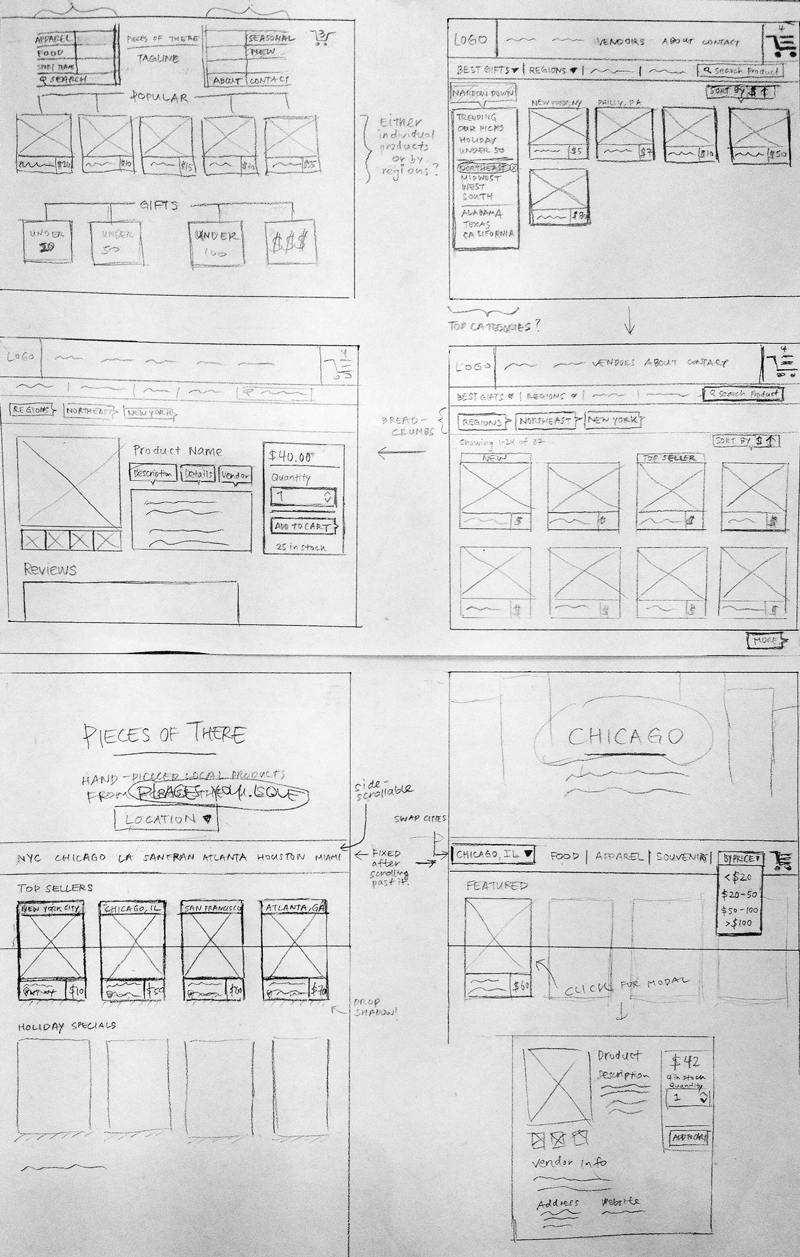 APPAREL
FOOD
SEARCH
PIECES OF THERE
TAGLINE
SEASONAL
NEW
ABOUT CONTACT
3
POPULAR
$20 $10 $15 $35
Either
individual
products
or by
regions?
GIFTS
UNDER
20
UNDER
50
UNDER
100
$$$
LOGO VENDORS ABOUT CONTACT 4
BEST GIFTS REGIONS Search Product
NARROW DOWN
SORT BY $
NEW YORK, NY PHILLY, PA
TRENDING
OUR PICKS
HOLIDAY
UNDER 50
NORTHEAST X
MIDWEST
WEST
SOUTH
ALABAMA
TEXAS
CALIFORNIA
$5 $7 $10 $50
TOP CATEGORIES?
LOGO 4
REGIONS NORTHEAST NEW YORK
Product Name
Description Details Vendor
$40.00
Quantity
1
ADD TO CART
25 in stock
Reviews
BREAD-
CRUMBS
LOGO VENDORS ABOUT CONTACT 4
BEST GIFTS REGIONS Search Product
REGIONS NORTHEAST NEW YORK
Showing 1-24 of 37
SORT BY $
NEW TOP SELLER
$ $ $
$ $ $ $
MORE
PIECES OF THERE
HAND-PICKED LOCAL PRODUCTS
FROM PLACES YOU LOVE
LOCATION
side-
scrollable
NYC CHICAGO LA SANFRAN ATLANTA HOUSTON MIAMI
FIXED
after
scrolling
past it.
TOP SELLERS
NEW YORK CITY CHICAGO, IL SAN FRANCISCO ATLANTA, GA
$10 $50 $60 $70
DROP
SHADOW!
HOLIDAY SPECIALS
CHICAGO
SWAP CITIES
CHICAGO, IL FOOD APPAREL SOUVENIRS BY PRICE
< $20
$20-50
$50-100
> $100
FEATURED
$60
CLICK FOR MODAL
Product
Description
$42
4 in stock
Quantity
1
ADD TO CART
Vendor Info
Address Website